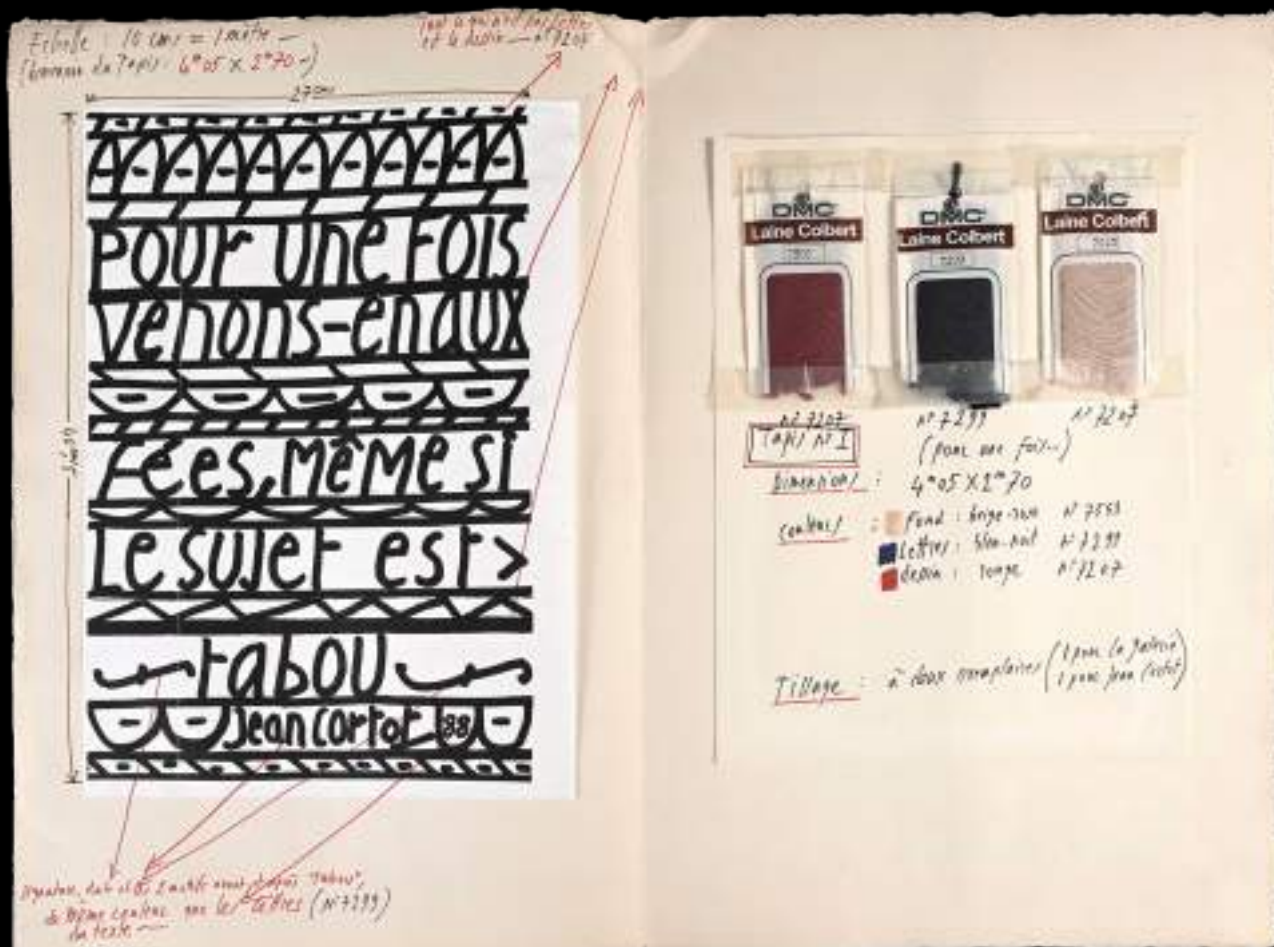 Echelle : 10 cms = 1 mètre
Tapis : 4m05 X 2m70
et le dessin — n° 7207
27 cm
Pour une fois
venons-en aux
Fées, même si
Le sujet est >
tabou
Jean Cortot 88
"tabou",
de même couleur que les lettres (N° 7299)
du texte
DMC
Laine Colbert
DMC
Laine Colbert
DMC
Laine Colbert
n° 7207
n° 7299
n° 7207
Tapis N° I
(pour une fois...)
Dimensions : 4m05 X 2m70
couleurs : Fond : beige-rose N°
Lettres : bleu-nuit N° 7299
dessin : rouge N° 7207
Tillage : à deux exemplaires (1 pour la galerie
1 pour Jean Cortot)